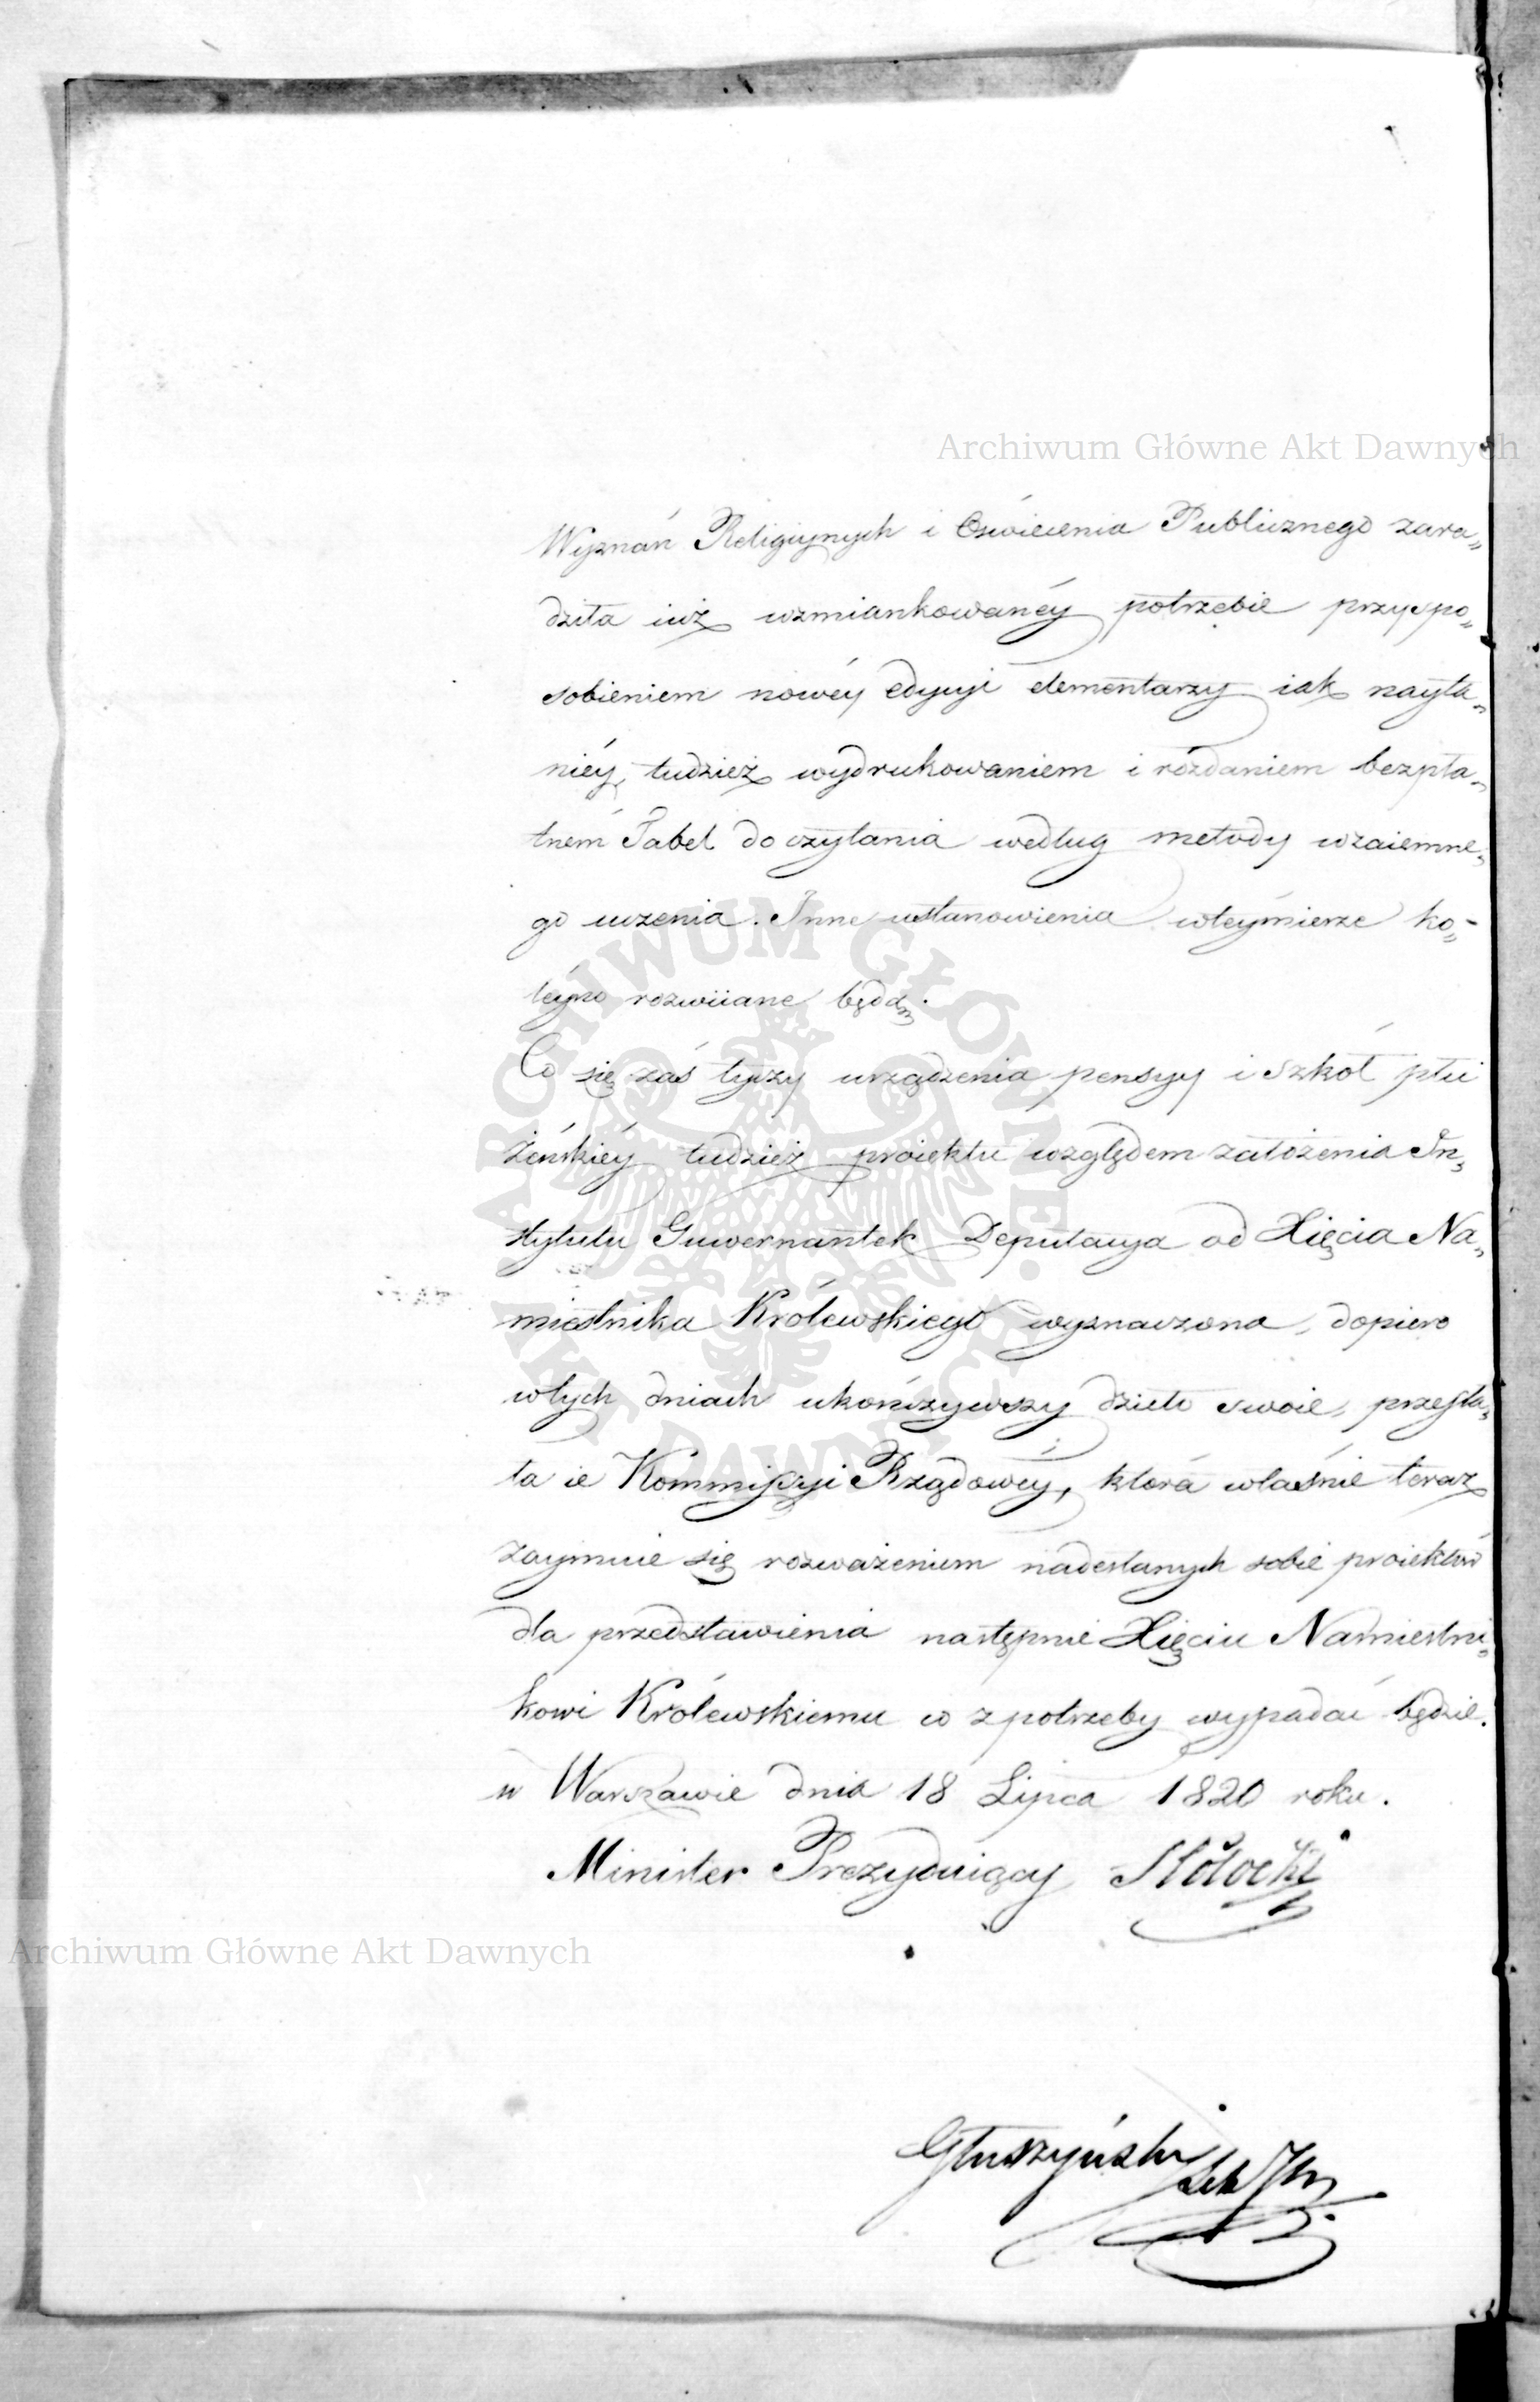 Archiwum Główne Akt Dawnych
Wyznań Religiynych i Oświecenia Publicznego zara„
dziła iuż wzmiankowanéy potrzebie przyspo„
sobieniem nowéy edycyi elementarzy iak nayta„
niéy, tudzież wydrukowaniem i rozdaniem bezpła„
tném Tabel do czytania według metody wzaiemne„
go uczenia. Inne ustanowienia wteymierze ko„
leyno rozwiiane będą.
Co się zaś tyczy urządzenia pensyy i szkół płci
żeńskiéy tudzież proiektu względem założenia In„
stytutu Guwernantek Deputacya od Xięcia Na„
miestnika Królewskiego wyznaczona, dopiero
wtych dniach ukończywszy dzieło swoie, przesła„
ła ie Kommissyi Rządowéy, która właśnie teraz
zaymuie się rozważeniem nadesłanych sobie proiektów
dla przedstawienia następnie Xięciu Namiestni„
kowi Królewskiemu co z potrzeby wypadać będzie.
w Warszawie dnia 18 Lipca 1820 roku.
Minister Prezyduiący SPotocki
Archiwum Główne Akt Dawnych
Głuszyński
ARCHIWUM GŁÓWNE AKT DAWNYCH